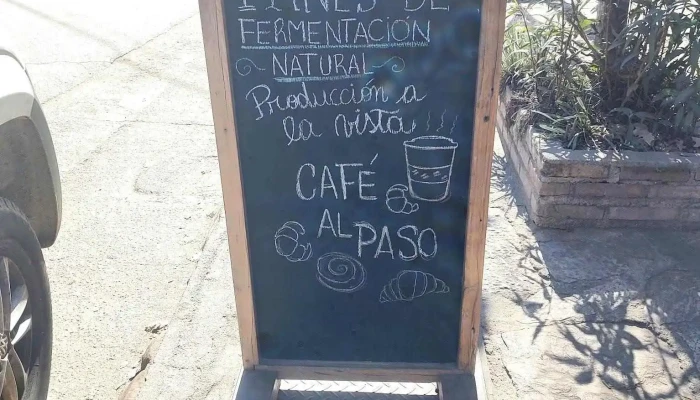 PANES DE
FERMENTACIÓN
NATURAL
Producción a
la vista
CAFÉ
AL PASO